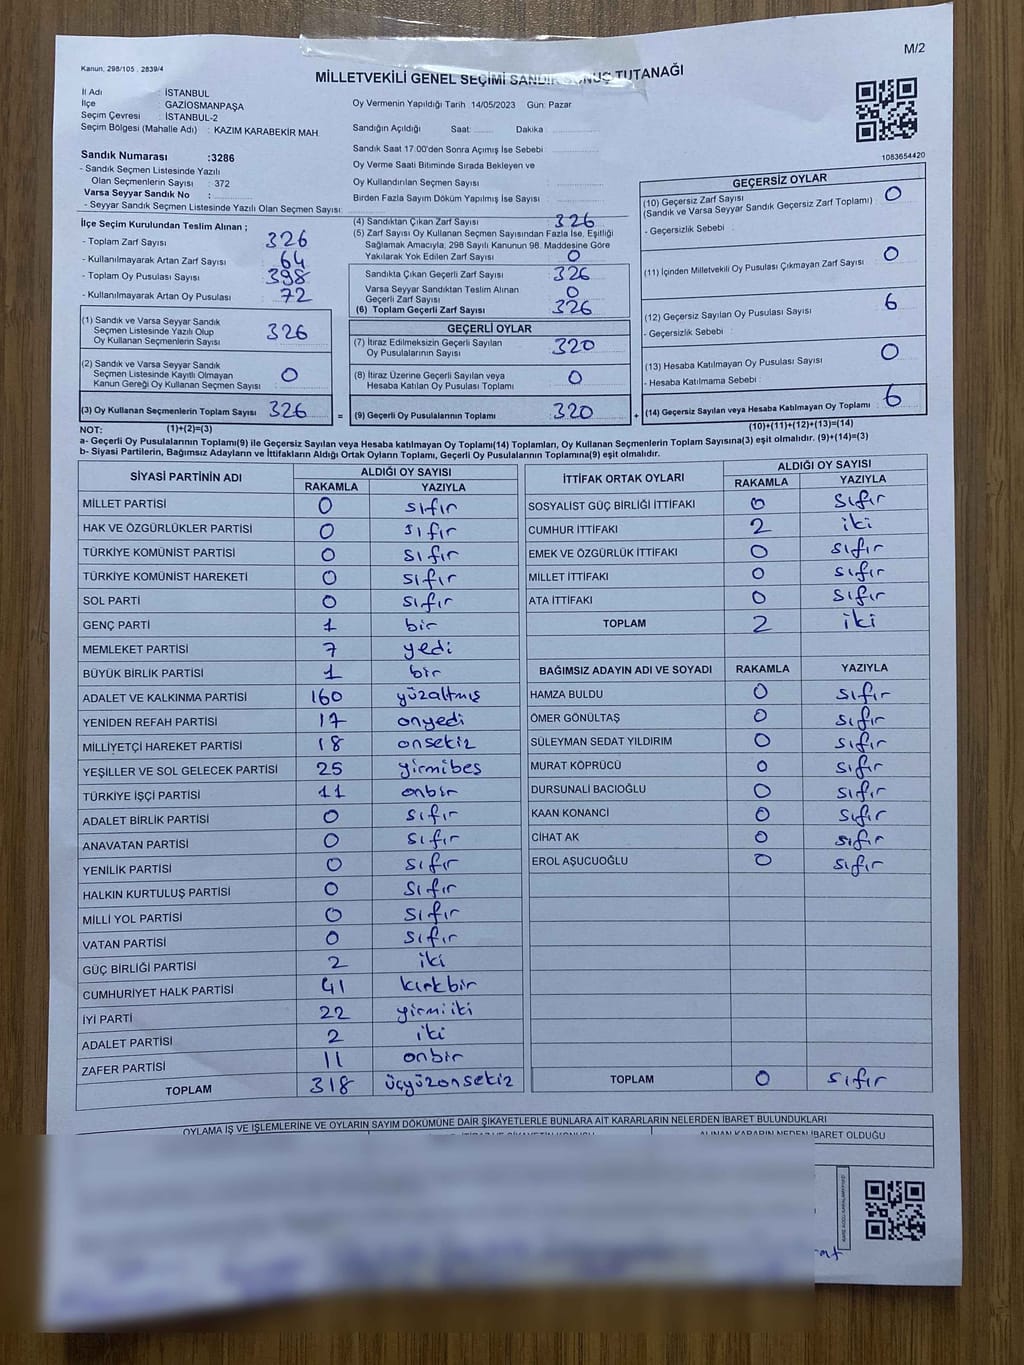 M/2
Kanun, 298/105 , 2839/4
MİLLETVEKİLİ GENEL SEÇİMİ SANDIK SONUÇ TUTANAĞI
İl Adı : İSTANBUL
İlçe : GAZİOSMANPAŞA
Seçim Çevresi : İSTANBUL-2
Seçim Bölgesi (Mahalle Adı) : KAZIM KARABEKİR MAH.
Sandık Numarası :3286
- Sandık Seçmen Listesinde Yazılı
Olan Seçmenlerin Sayısı : 372
Varsa Seyyar Sandık No :
- Seyyar Sandık Seçmen Listesinde Yazılı Olan Seçmen Sayısı:
Oy Vermenin Yapıldığı Tarih :14/05/2023 Gün: Pazar
Sandığın Açıldığı Saat: Dakika :
Sandık Saat 17:00'den Sonra Açımış İse Sebebi :
Oy Verme Saati Bitiminde Sırada Bekleyen ve
Oy Kullandırılan Seçmen Sayısı :
Birden Fazla Sayım Döküm Yapılmış İse Sayısı :
1083654420
İlçe Seçim Kurulundan Teslim Alınan ;
- Toplam Zarf Sayısı : 326
- Kullanılmayarak Artan Zarf Sayısı : 64
- Toplam Oy Pusulası Sayısı : 398
- Kullanılmayarak Artan Oy Pusulası : 72
(1) Sandık ve Varsa Seyyar Sandık
Seçmen Listesinde Yazılı Olup
Oy Kullanan Seçmenlerin Sayısı : 326
(2) Sandık ve Varsa Seyyar Sandık
Seçmen Listesinde Kayıtlı Olmayan
Kanun Gereği Oy Kullanan Seçmen Sayısı : 0
(3) Oy Kullanan Seçmenlerin Toplam Sayısı : 326
(1)+(2)=(3)
(4) Sandıktan Çıkan Zarf Sayısı : 326
(5) Zarf Sayısı Oy Kullanan Seçmen Sayısından Fazla İse, Eşitliği
Sağlamak Amacıyla, 298 Sayılı Kanunun 98. Maddesine Göre
Yakılarak Yok Edilen Zarf Sayısı : 0
Sandıkta Çıkan Geçerli Zarf Sayısı : 326
Varsa Seyyar Sandıktan Teslim Alınan
Geçerli Zarf Sayısı : 0
(6) Toplam Geçerli Zarf Sayısı : 326
GEÇERLİ OYLAR
(7) İtiraz Edilmeksizin Geçerli Sayılan
Oy Pusulalarının Sayısı : 320
(8) İtiraz Üzerine Geçerli Sayılan veya
Hesaba Katılan Oy Pusulası Toplamı : 0
= (9) Geçerli Oy Pusulalarının Toplamı : 320
GEÇERSİZ OYLAR
(10) Geçersiz Zarf Sayısı
(Sandık ve Varsa Seyyar Sandık Geçersiz Zarf Toplamı) : 0
- Geçersizlik Sebebi :
(11) İçinden Milletvekili Oy Pusulası Çıkmayan Zarf Sayısı : 0
(12) Geçersiz Sayılan Oy Pusulası Sayısı : 6
- Geçersizlik Sebebi :
(13) Hesaba Katılmayan Oy Pusulası Sayısı : 0
- Hesaba Katılmama Sebebi :
+ (14) Geçersiz Sayılan veya Hesaba Katılmayan Oy Toplamı : 6
(10)+(11)+(12)+(13)=(14)
NOT:
a- Geçerli Oy Pusulalarının Toplamı(9) ile Geçersiz Sayılan veya Hesaba katılmayan Oy Toplamı(14) Toplamları, Oy Kullanan Seçmenlerin Toplam Sayısına(3) eşit olmalıdır. (9)+(14)=(3)
b- Siyasi Partilerin, Bağımsız Adayların ve İttifakların Aldığı Ortak Oyların Toplamı, Geçerli Oy Pusulalarının Toplamına(9) eşit olmalıdır.
SİYASİ PARTİNİN ADI ALDIĞI OY SAYISI
RAKAMLA YAZIYLA
MİLLET PARTİSİ 0 sıfır
HAK VE ÖZGÜRLÜKLER PARTİSİ 0 sıfır
TÜRKİYE KOMÜNİST PARTİSİ 0 sıfır
TÜRKİYE KOMÜNİST HAREKETİ 0 sıfır
SOL PARTİ 0 sıfır
GENÇ PARTİ 1 bir
MEMLEKET PARTİSİ 7 yedi
BÜYÜK BİRLİK PARTİSİ 1 bir
ADALET VE KALKINMA PARTİSİ 160 yüzaltmış
YENİDEN REFAH PARTİSİ 17 onyedi
MİLLİYETÇİ HAREKET PARTİSİ 18 onsekiz
YEŞİLLER VE SOL GELECEK PARTİSİ 25 yirmibeş
TÜRKİYE İŞÇİ PARTİSİ 11 onbir
ADALET BİRLİK PARTİSİ 0 sıfır
ANAVATAN PARTİSİ 0 sıfır
YENİLİK PARTİSİ 0 sıfır
HALKIN KURTULUŞ PARTİSİ 0 sıfır
MİLLİ YOL PARTİSİ 0 sıfır
VATAN PARTİSİ 0 sıfır
GÜÇ BİRLİĞİ PARTİSİ 2 iki
CUMHURİYET HALK PARTİSİ 41 kırkbir
İYİ PARTİ 22 yirmiiki
ADALET PARTİSİ 2 iki
ZAFER PARTİSİ 11 onbir
TOPLAM 318 üçyüzonsekiz
İTTİFAK ORTAK OYLARI ALDIĞI OY SAYISI
RAKAMLA YAZIYLA
SOSYALİST GÜÇ BİRLİĞİ İTTİFAKI 0 sıfır
CUMHUR İTTİFAKI 2 iki
EMEK VE ÖZGÜRLÜK İTTİFAKI 0 sıfır
MİLLET İTTİFAKI 0 sıfır
ATA İTTİFAKI 0 sıfır
TOPLAM 2 iki
BAĞIMSIZ ADAYIN ADI VE SOYADI RAKAMLA YAZIYLA
HAMZA BULDU 0 sıfır
ÖMER GÖNÜLTAŞ 0 sıfır
SÜLEYMAN SEDAT YILDIRIM 0 sıfır
MURAT KÖPRÜCÜ 0 sıfır
DURSUNALİ BACIOĞLU 0 sıfır
KAAN KONANCİ 0 sıfır
CİHAT AK 0 sıfır
EROL AŞUCUOĞLU 0 sıfır
TOPLAM 0 sıfır
OYLAMA İŞ VE İŞLEMLERİNE VE OYLARIN SAYIM DÖKÜMÜNE DAİR ŞİKAYETLERLE BUNLARA AİT KARARLARIN NELERDEN İBARET BULUNDUKLARI
ALINAN KARARIN NEDEN İBARET OLDUĞU